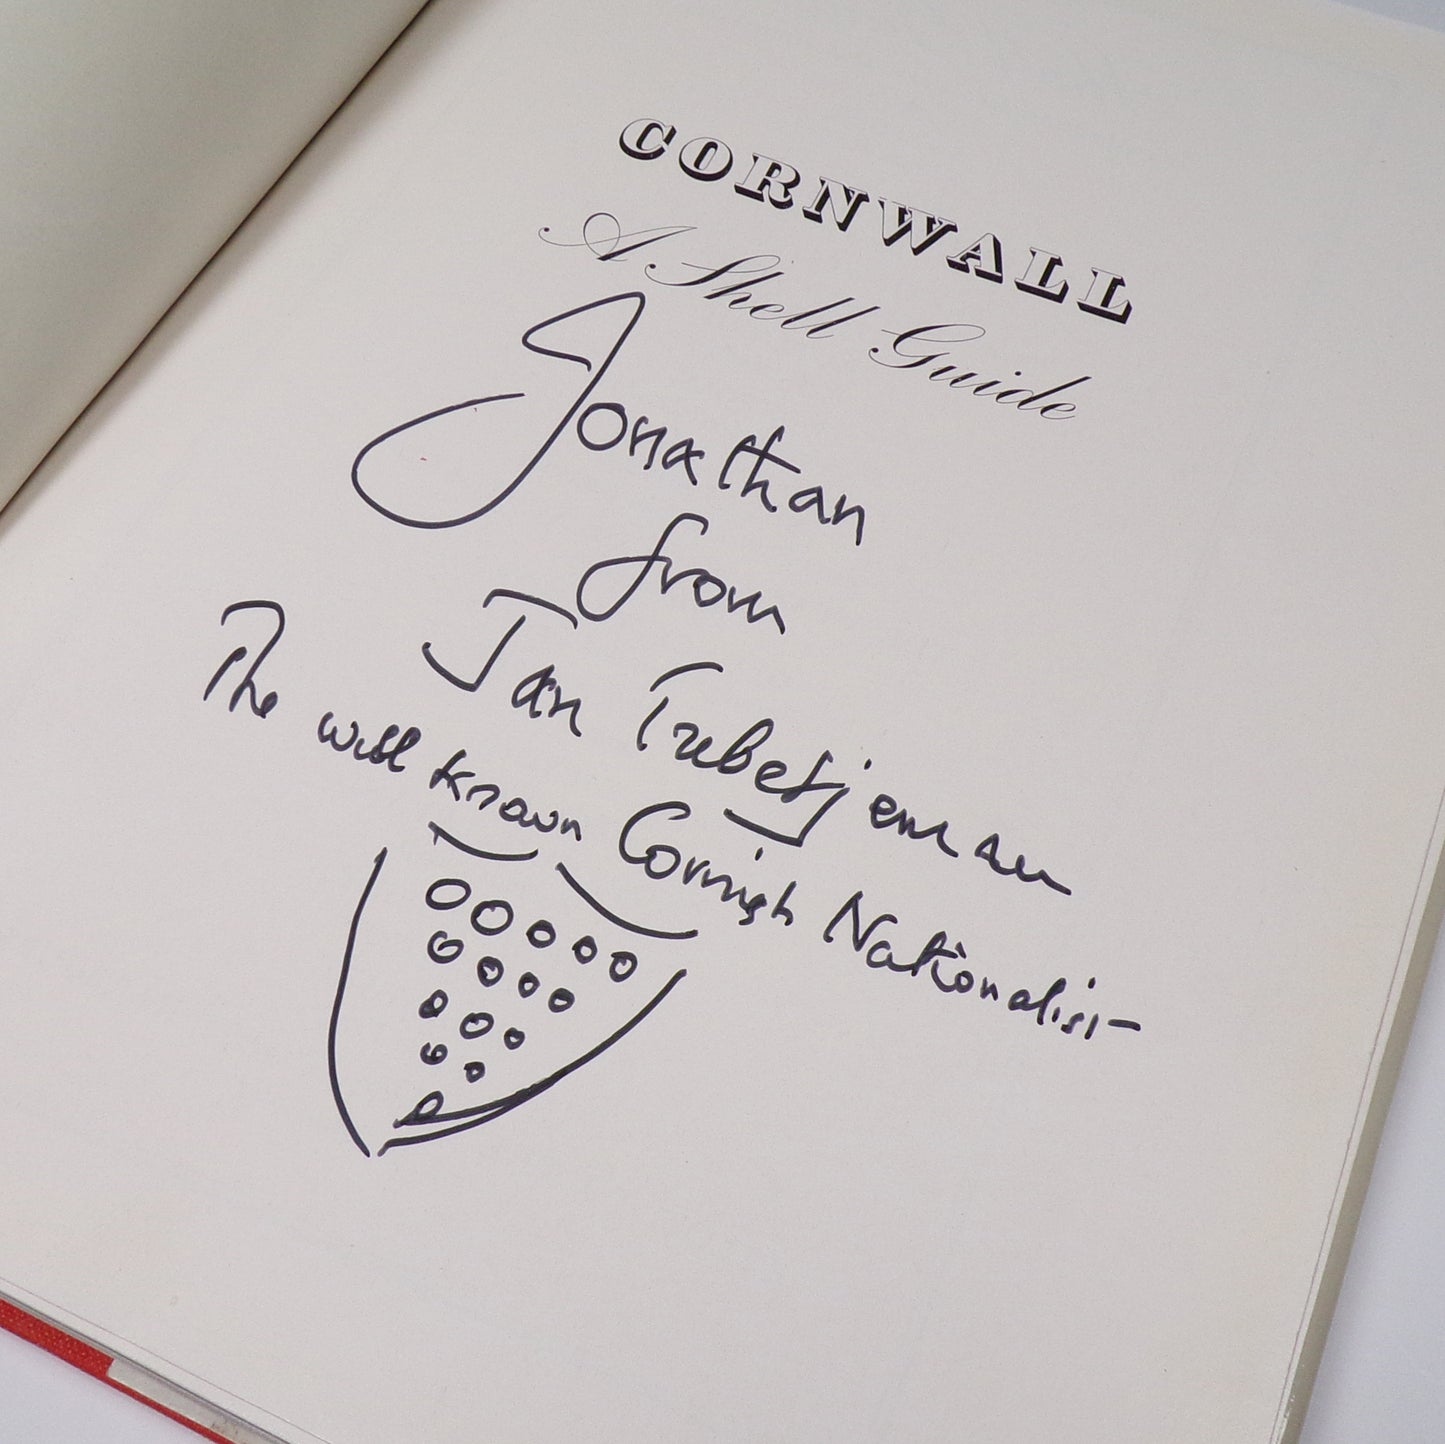 CORNWALL
A Shell Guide
Jonathan
from
Jan Trebetjeman
The well known Cornish Nationalist